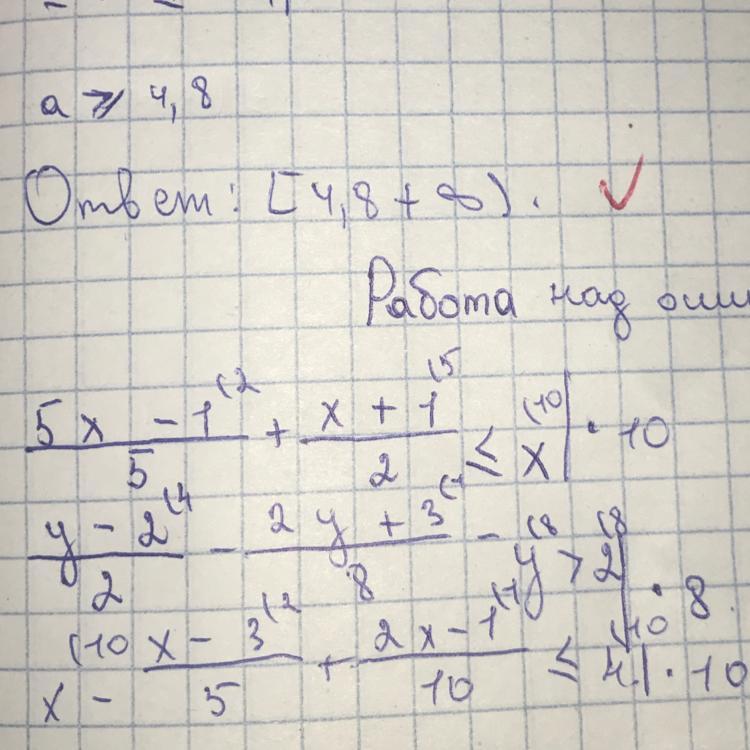 a ⩾ 4,8
Ответ: [4,8 + ∞).
Работа над
(5x - 1)/5 (2 + (x + 1)/2 (5 ≤ x (10 | · 10
(y - 2)/2 (4 - (2y + 3)/8 (1 - y (8 > 2 (8 | · 8
(10 x - (x - 3)/5 (2 + (2x - 1)/10 (1 ≤ 4 (10 | · 10